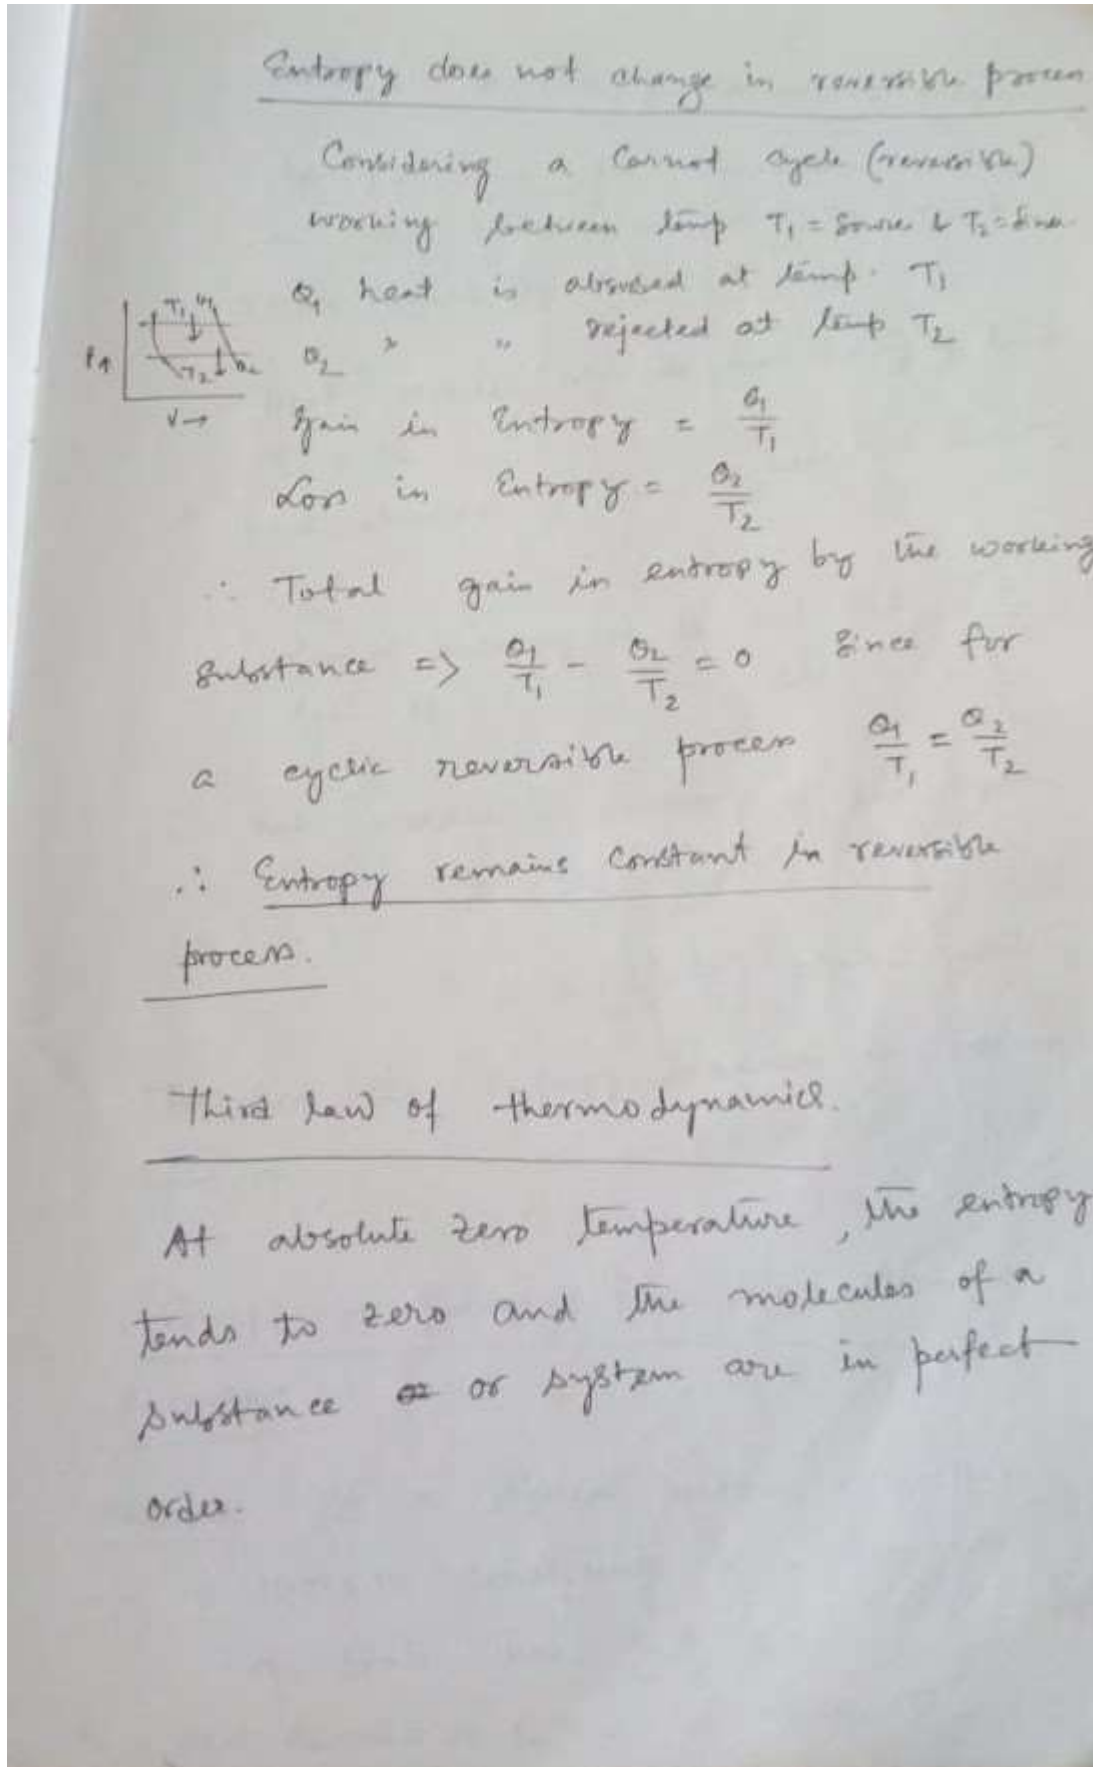 Entropy does not change in reversible process
Considering a Carnot cycle (reversible)
working between temp T₁ = Source & T₂ =
Q₁ heat is absorbed at temp. T₁
Q₂ " " rejected at temp T₂
P↑ T₁ Q₁ T₂ Q₂
V→
Gain in Entropy = Q₁/T₁
Loss in Entropy = Q₂/T₂
∴ Total gain in entropy by the working
substance => Q₁/T₁ - Q₂/T₂ = 0 Since for
a cyclic reversible process Q₁/T₁ = Q₂/T₂
∴ Entropy remains constant in reversible
process.
Third law of thermodynamics.
At absolute zero temperature, the entropy
tends to zero and the molecules of a
substance or system are in perfect
order.